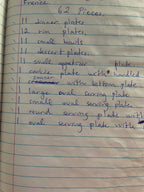 France
62 Pieces
11 dinner plates
12 rim plates
11 small bowls
11 dessert plates
11 small plate
1 plate with handled
with bottom plate
1 large oval serving plate
1 small oval serving plate
1 round serving plate with
1 oval serving plate with